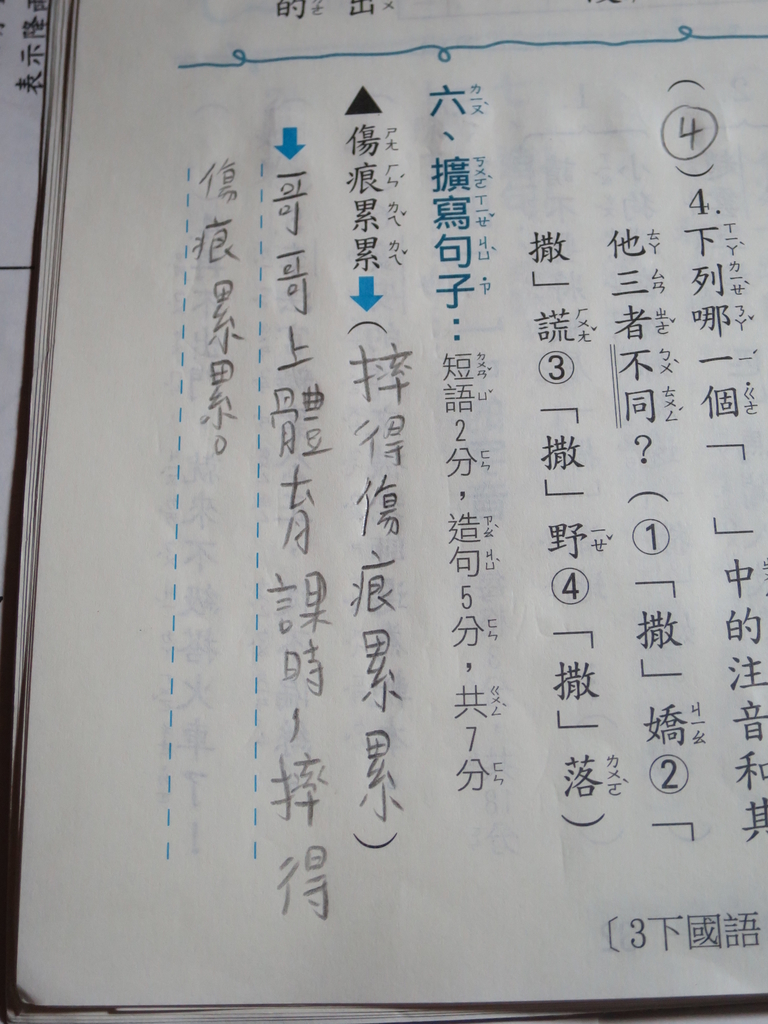 (④)4.下列哪一個「　」中的注音和其
他三者不同？(①「撒」嬌②「
撒」謊③「撒」野④「撒」落)
六、擴寫句子：短語2分，造句5分，共7分
▲傷痕累累➡(摔得傷痕累累)
➡哥哥上體育課時，摔得
傷痕累累。
〔3下國語
表示隆雨
的 出